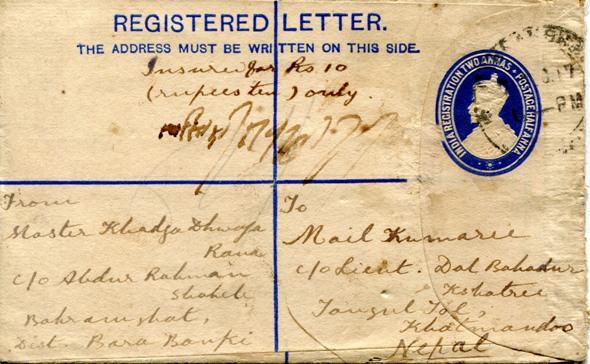 REGISTERED LETTER.
THE ADDRESS MUST BE WRITTEN ON THIS SIDE.
Insured for Rs 10
(rupees ten) only.
INDIA REGISTRATION TWO ANNAS • POSTAGE HALF ANNA
PM
From
Master Khadga Dhwoja
Rana
c/o Abdur Rahman
Bahramghat,
Dist. Bara Banki
To
Mail Kumaree
c/o Lieut. Dal Bahadur
Kshatree
Tangul Tol,
Khatmandoo
Nepal